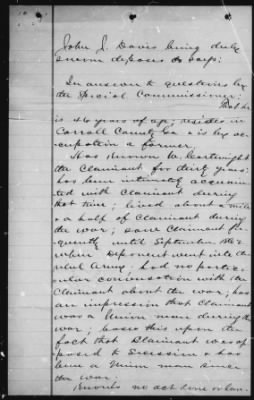 John J. Davis being duly
sworn deposes & says:
In answer to questions by
the Special Commissioner:
That he
is 46 years of age resides in
Carroll County Ga & is by oc-
cupation a farmer.
Has known W. Cartwright
the Claimant for thirty years:
has been intimately acquain-
ted with Claimant during
that time; lived about a mile
& a half of Claimant during
the war; saw Claimant fre-
quently until September 1862
when deponent went into the
rebel Army; had no partic-
ular conversation with the
Claimant about the war; has
an impression that Claimant
was a Union man during the
war; bases this upon the
fact that Claimant was op-
posed to Secession & has
been a Union man since
the war.
Knows no act done or lan-